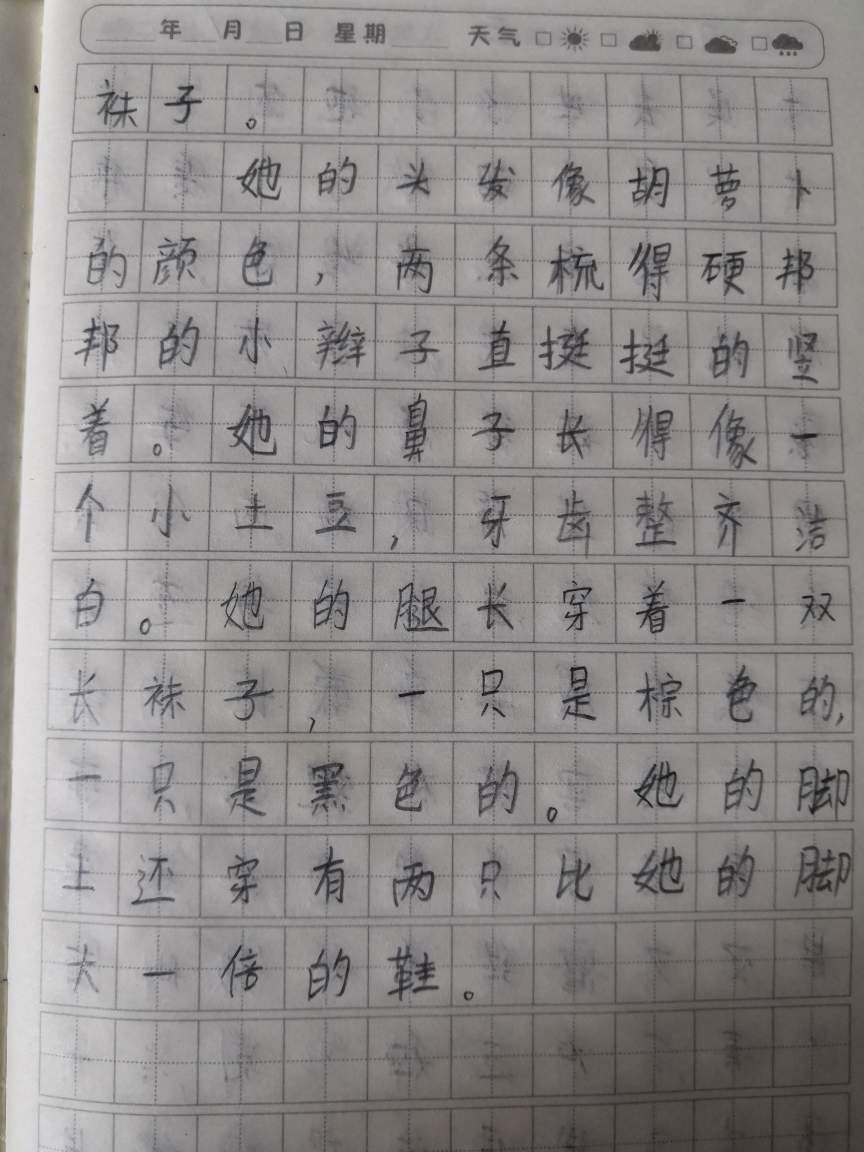 年 月 日 星期 天气
袜子。
她的头发像胡萝卜
的颜色，两条梳得硬邦
邦的小辫子直挺挺的竖
着。她的鼻子长得像一
个小土豆，牙齿整齐洁
白。她的腿长穿着一双
长袜子，一只是棕色的，
一只是黑色的。她的脚
上还穿有两只比她的脚
大一倍的鞋。